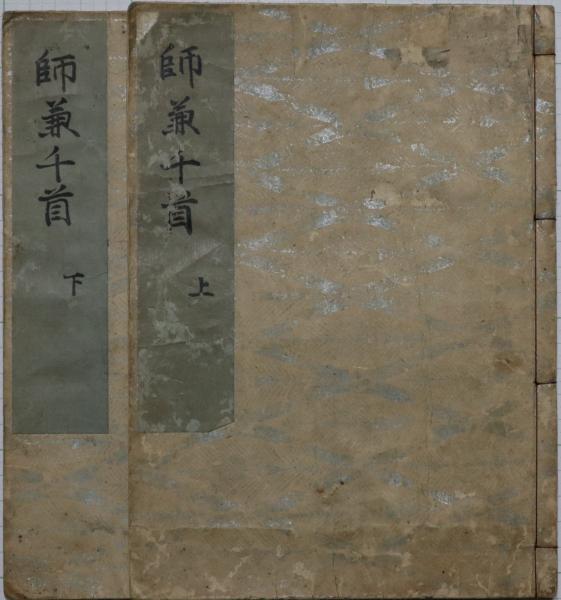 師兼千首 上
師兼千首 下